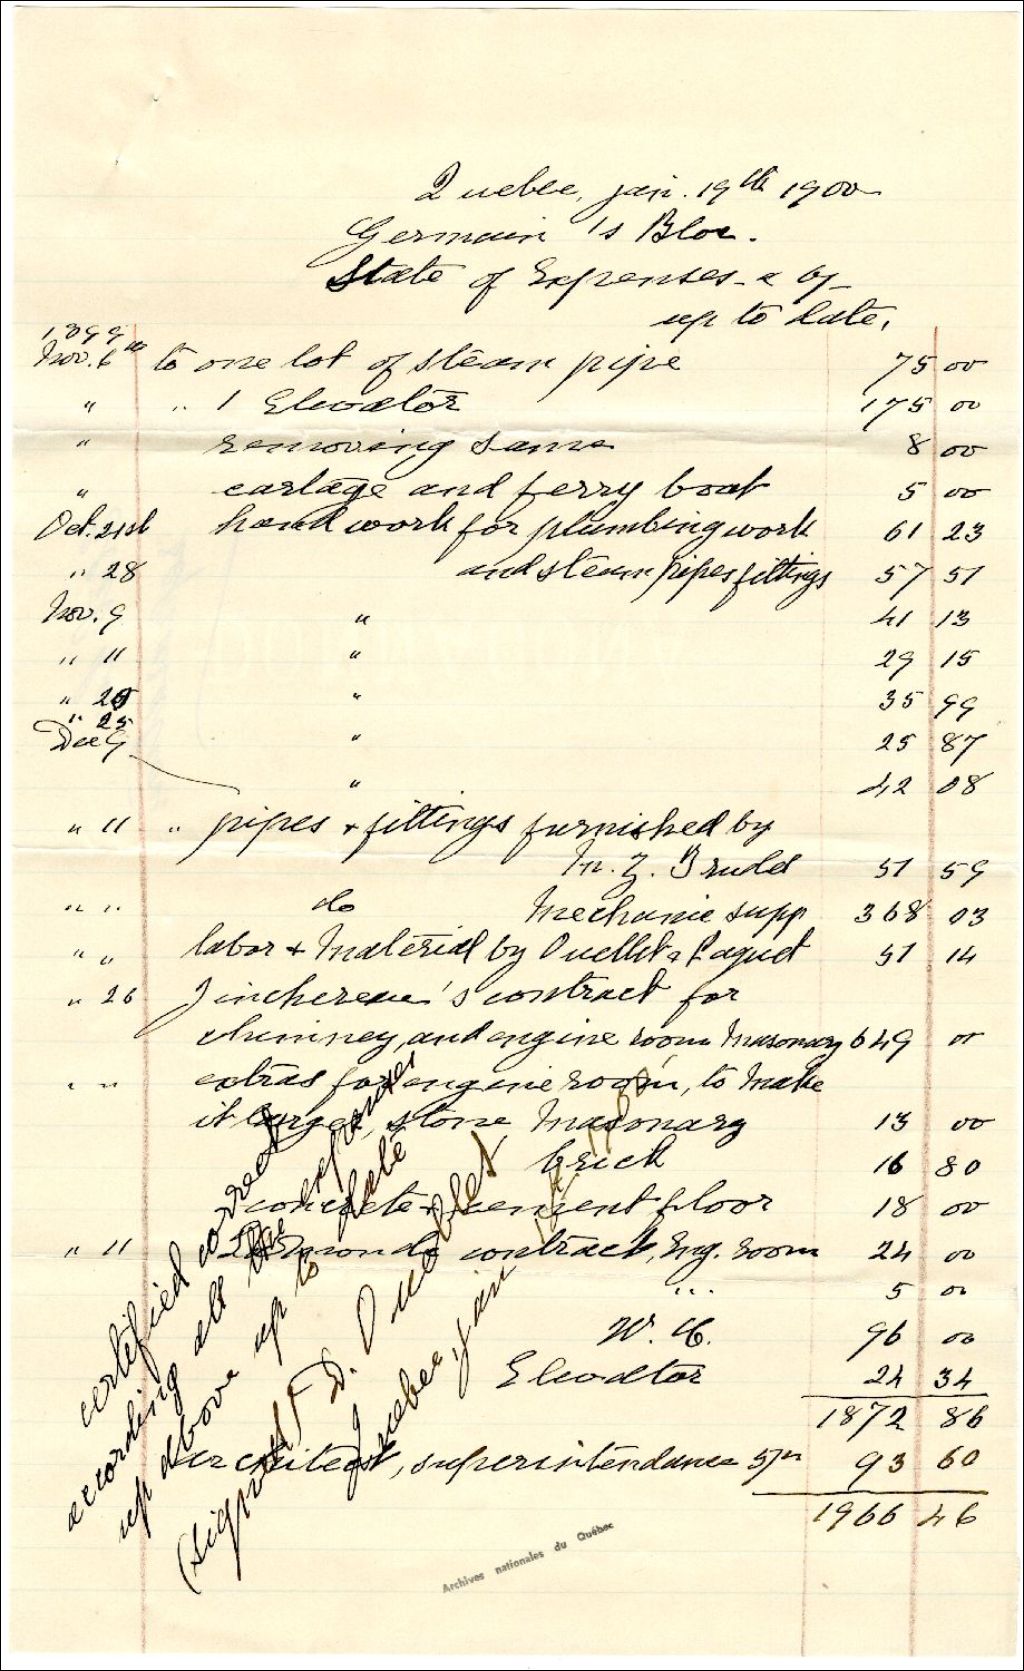 Quebec, jan. 19th 1900
Germain 's Bloc.
State of Expenses - & by -
up to date.
1899
Nov. 6th to one lot of steam pipe 75 00
" " 1 Elevator 175 00
" removing same 8 00
" cartage and ferry boat 5 00
Oct. 21st hand work for plumbing work 61 23
" 28 and steam pipes fittings 57 51
Nov. 9 " 41 13
" 11 " 29 15
" 20 " 35 99
" 25 " 25 87
Dec 9 " 42 08
" 11 " pipes & fittings furnished by
M. Z. 51 59
" " do Mechanic supp 368 03
" " labor & material by Ouellet & Paquet 51 14
" 26 Jinchereau's contract for
chimney, and engine room masonary 649 00
" " extras for engine room, to make
it larger, stone masonary 13 00
brick 16 80
concrete & cement floor 18 00
" 11 contract, Eng. room 24 00
" 5 00
W. H. 96 00
Elevator 24 34
1872 86
architect, superintendance 5% 93 60
1966 46
certified correct
according all the
up above up to date
(signed) D. Ouellet
Quebec, jan
Archives nationales du Québec